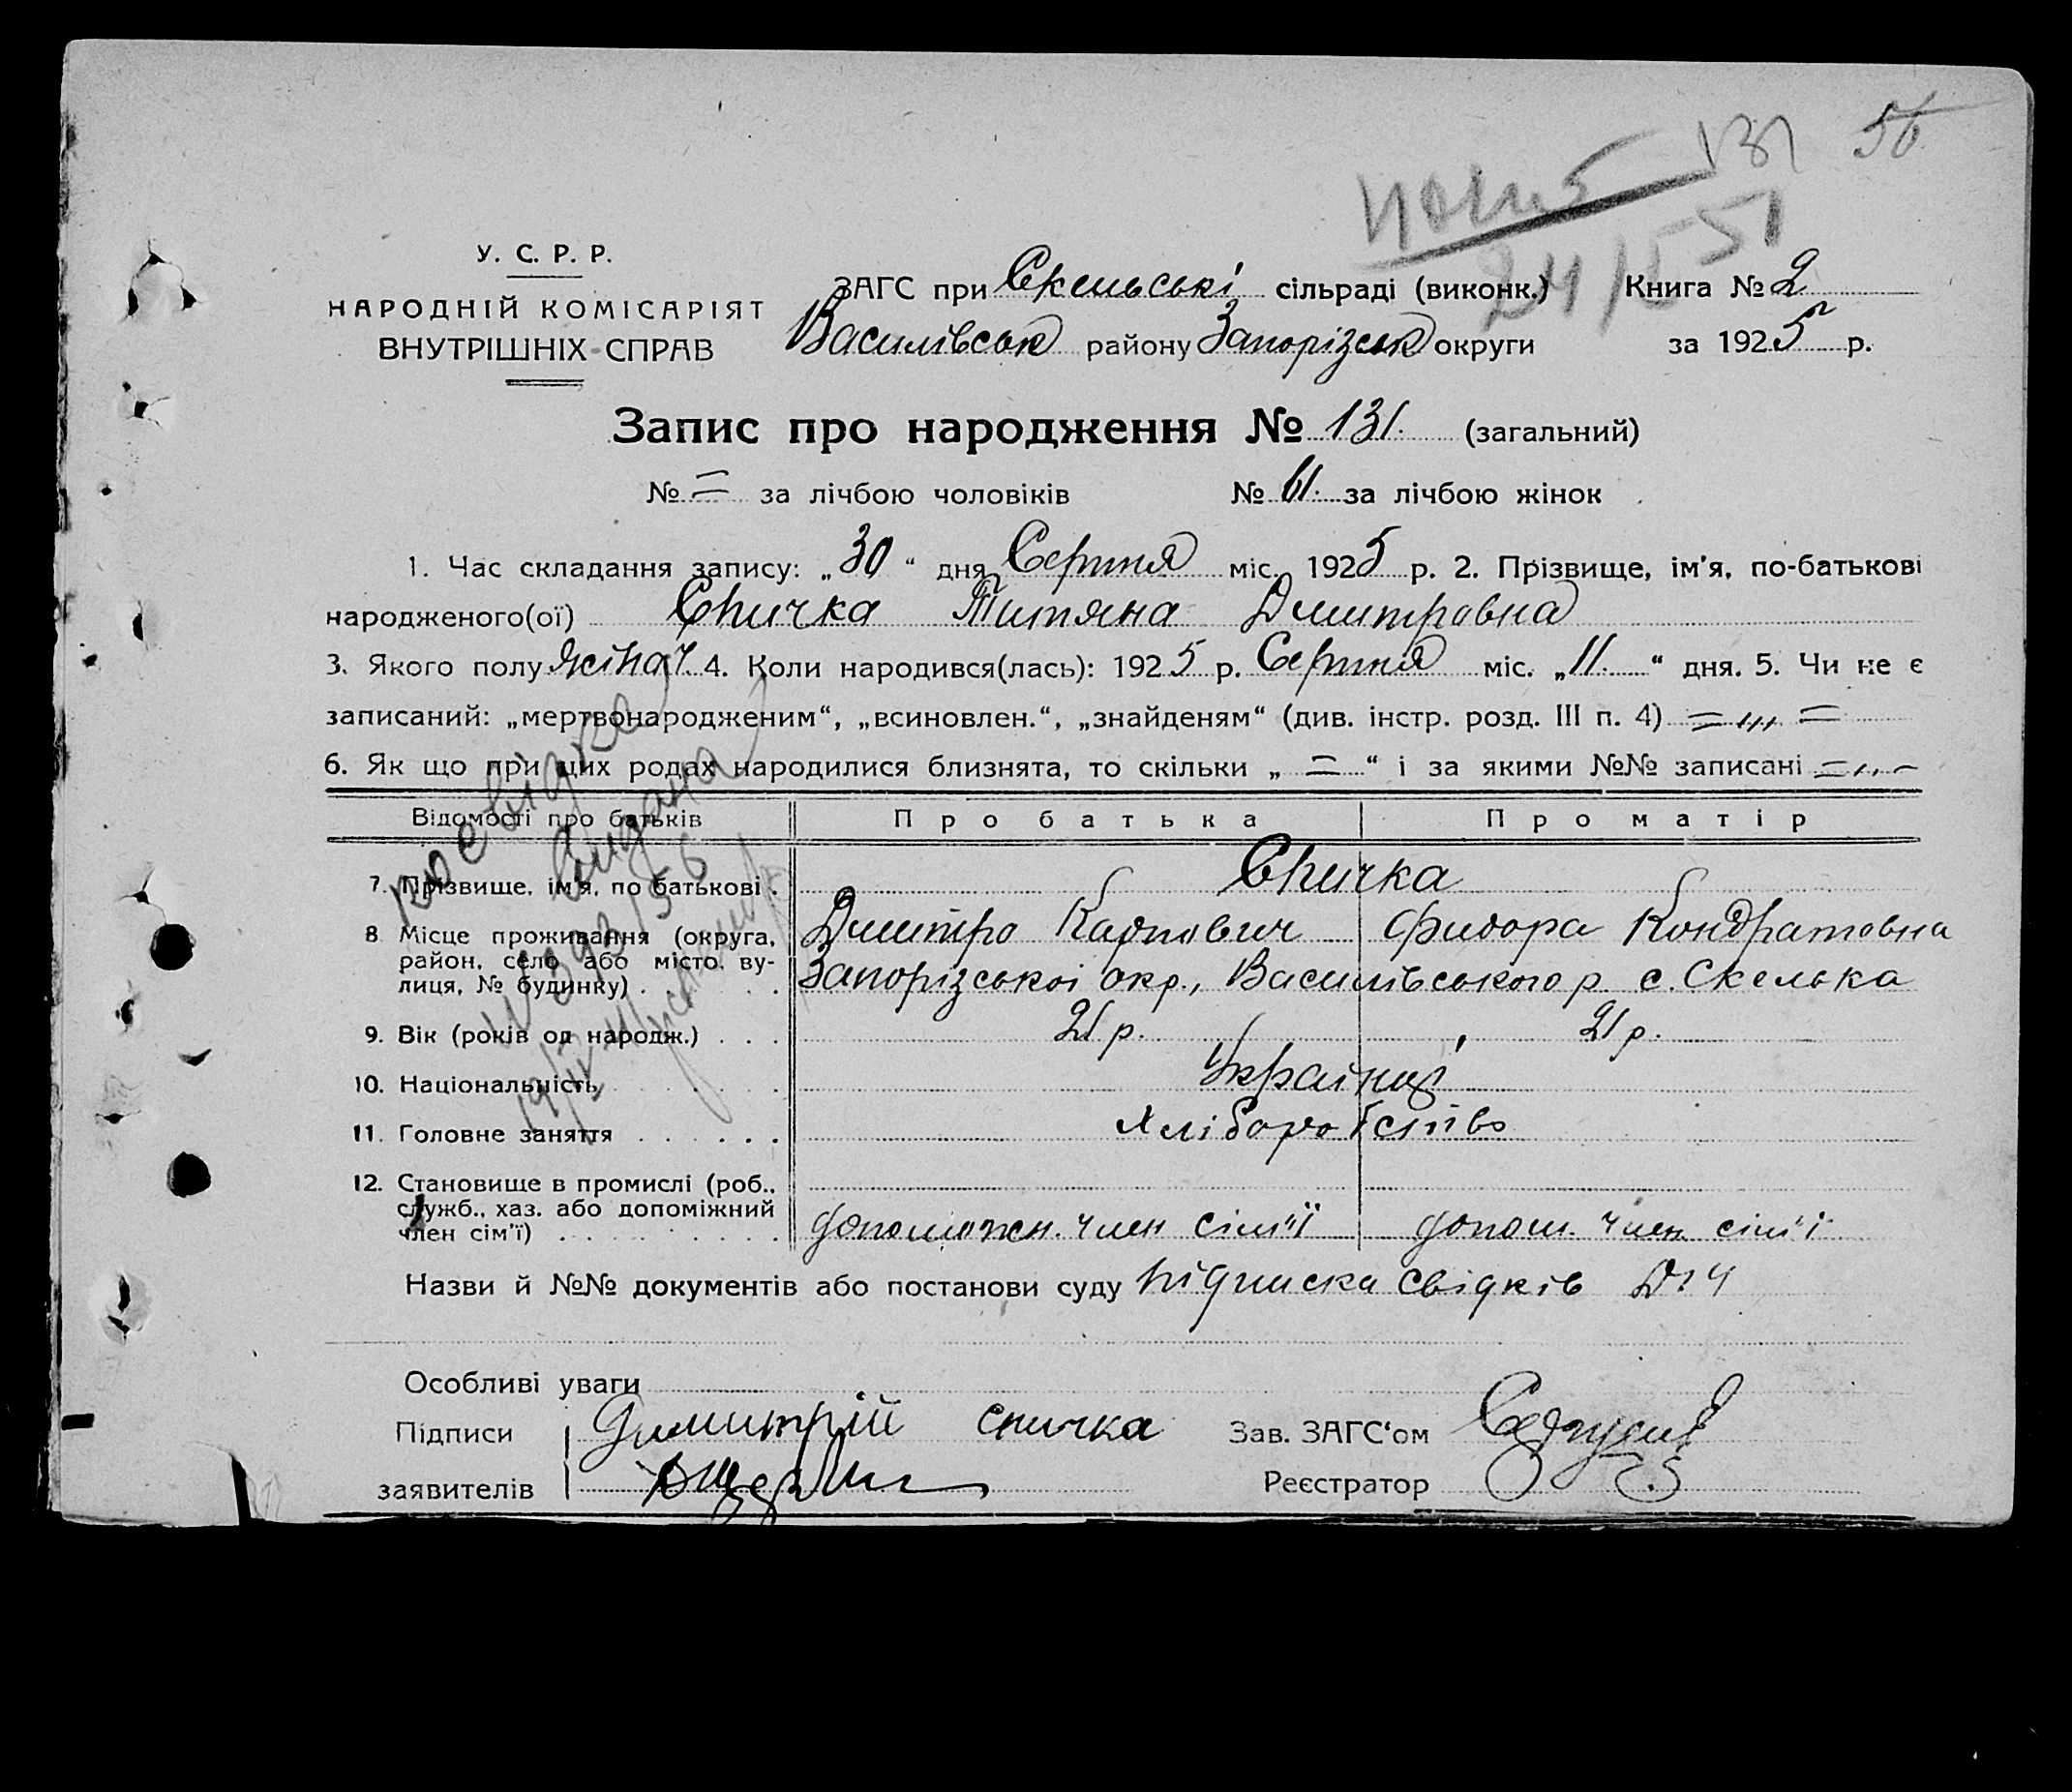 131 56
51
У. С. Р. Р.
НАРОДНІЙ КОМІСАРІЯТ
ВНУТРІШНІХ СПРАВ
ЗАГС при Скельські сільраді (виконк.) Книга № 2
Василівськ району Запорізськ округи за 1925 р.
Запис про народження № 131. (загальний)
№ = за лічбою чоловіків № 61. за лічбою жінок
1. Час складання запису: „30“ дня Серпня міс. 1925 р. 2. Прізвище, ім'я, по-батькові
народженого(ої) Спичка Титяна Дмитровна
3. Якого полу жіноч. 4. Коли народився(лась): 1925 р. Серпня міс. „11.“ дня. 5. Чи не є
записаний: „мертвонародженим“, „всиновлен.“, „знайденям“ (див. інстр. розд. III п. 4) = „„ =
6. Як що при цих родах народилися близнята, то скільки „ = “ і за якими №№ записані = „ -
Відомості про батьків Про батька Про матір
7. Прізвище, ім'я, по батькові . Спичка
8 Місце проживання (округа, Дмитро Карпович Фидора Кондратовна
район, село або місто, ву- Запорізської окр., Василівського р. с. Скелька
лиця, № будинку) . . . .
9. Вік (років од народж.) . . . 21 р. 21 р.
10. Національність Українці
11. Головне заняття . . . . . . Хліборобство
12. Становище в промислі (роб.,
служб., хаз. або допоміжний
член сім'ї) . . . . . . . . допоможн. член сім'ї допом. член сім'ї
Назви й №№ документів або постанови суду підписка свідків
Особливі уваги
Підписи Димитрій спичка Зав. ЗАГС'ом
заявителів Реєстратор
посвідка
видана